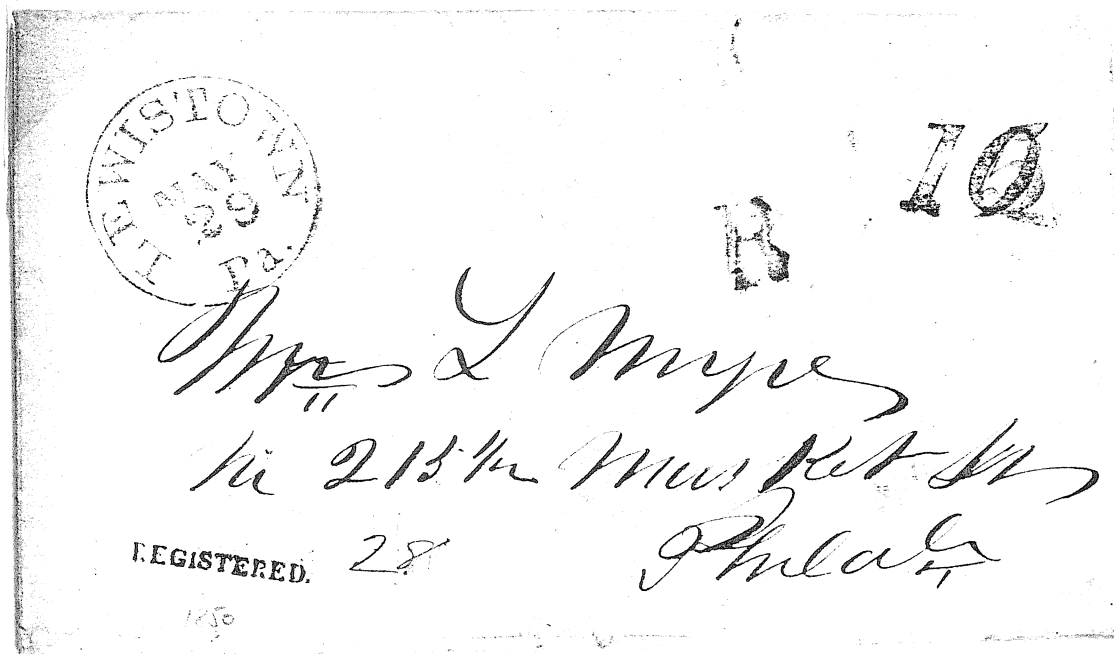 LEWISTOWN
MAY
29
Pa.
10
R
Mrs L Myers
No 215 1/2 Market St
Philada
REGISTERED. 28
1850